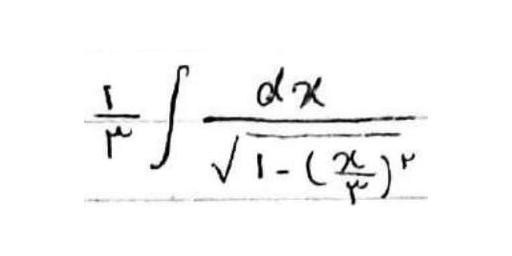 ۱/۳ ∫ dx / √(۱ - (x/۳)^۲)